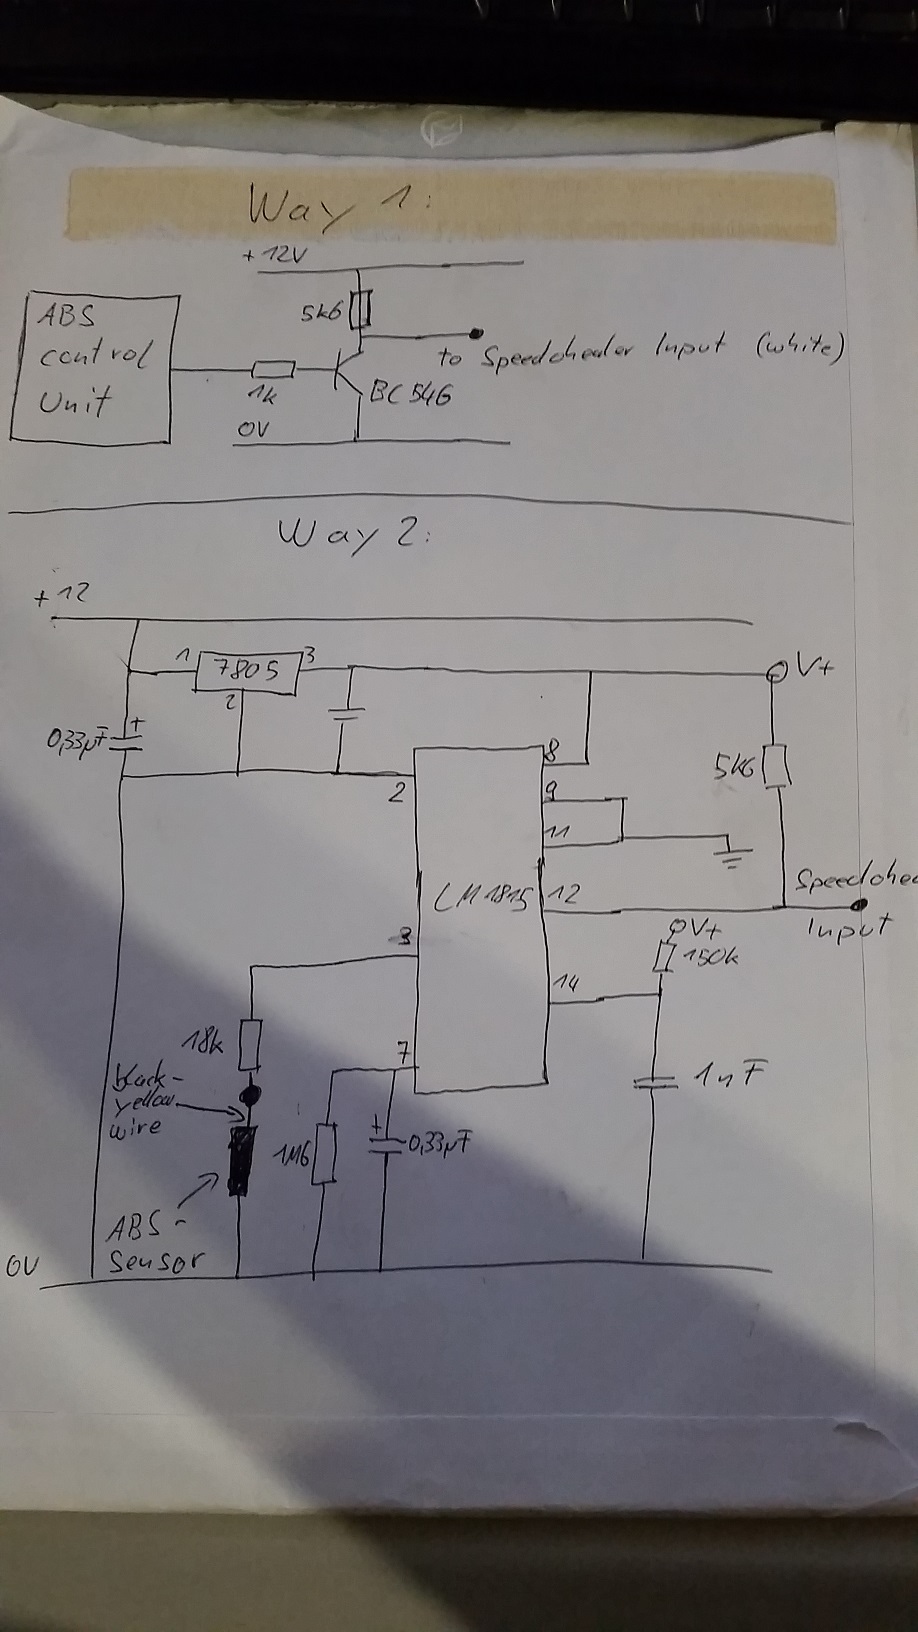 Way 1:
+ 12V
ABS
control
Unit
5k6
to Speedohealer Input (white)
1k
BC546
0V
Way 2:
+ 12
1
7805
3
V+
2
0,33µF
+
8
5k6
2
9
11
LM1815
12
Speedohea
Input
3
V+
150k
14
18k
7
1nF
black-
yellow
wire
+
0,33µF
1M6
ABS-
Sensor
0V